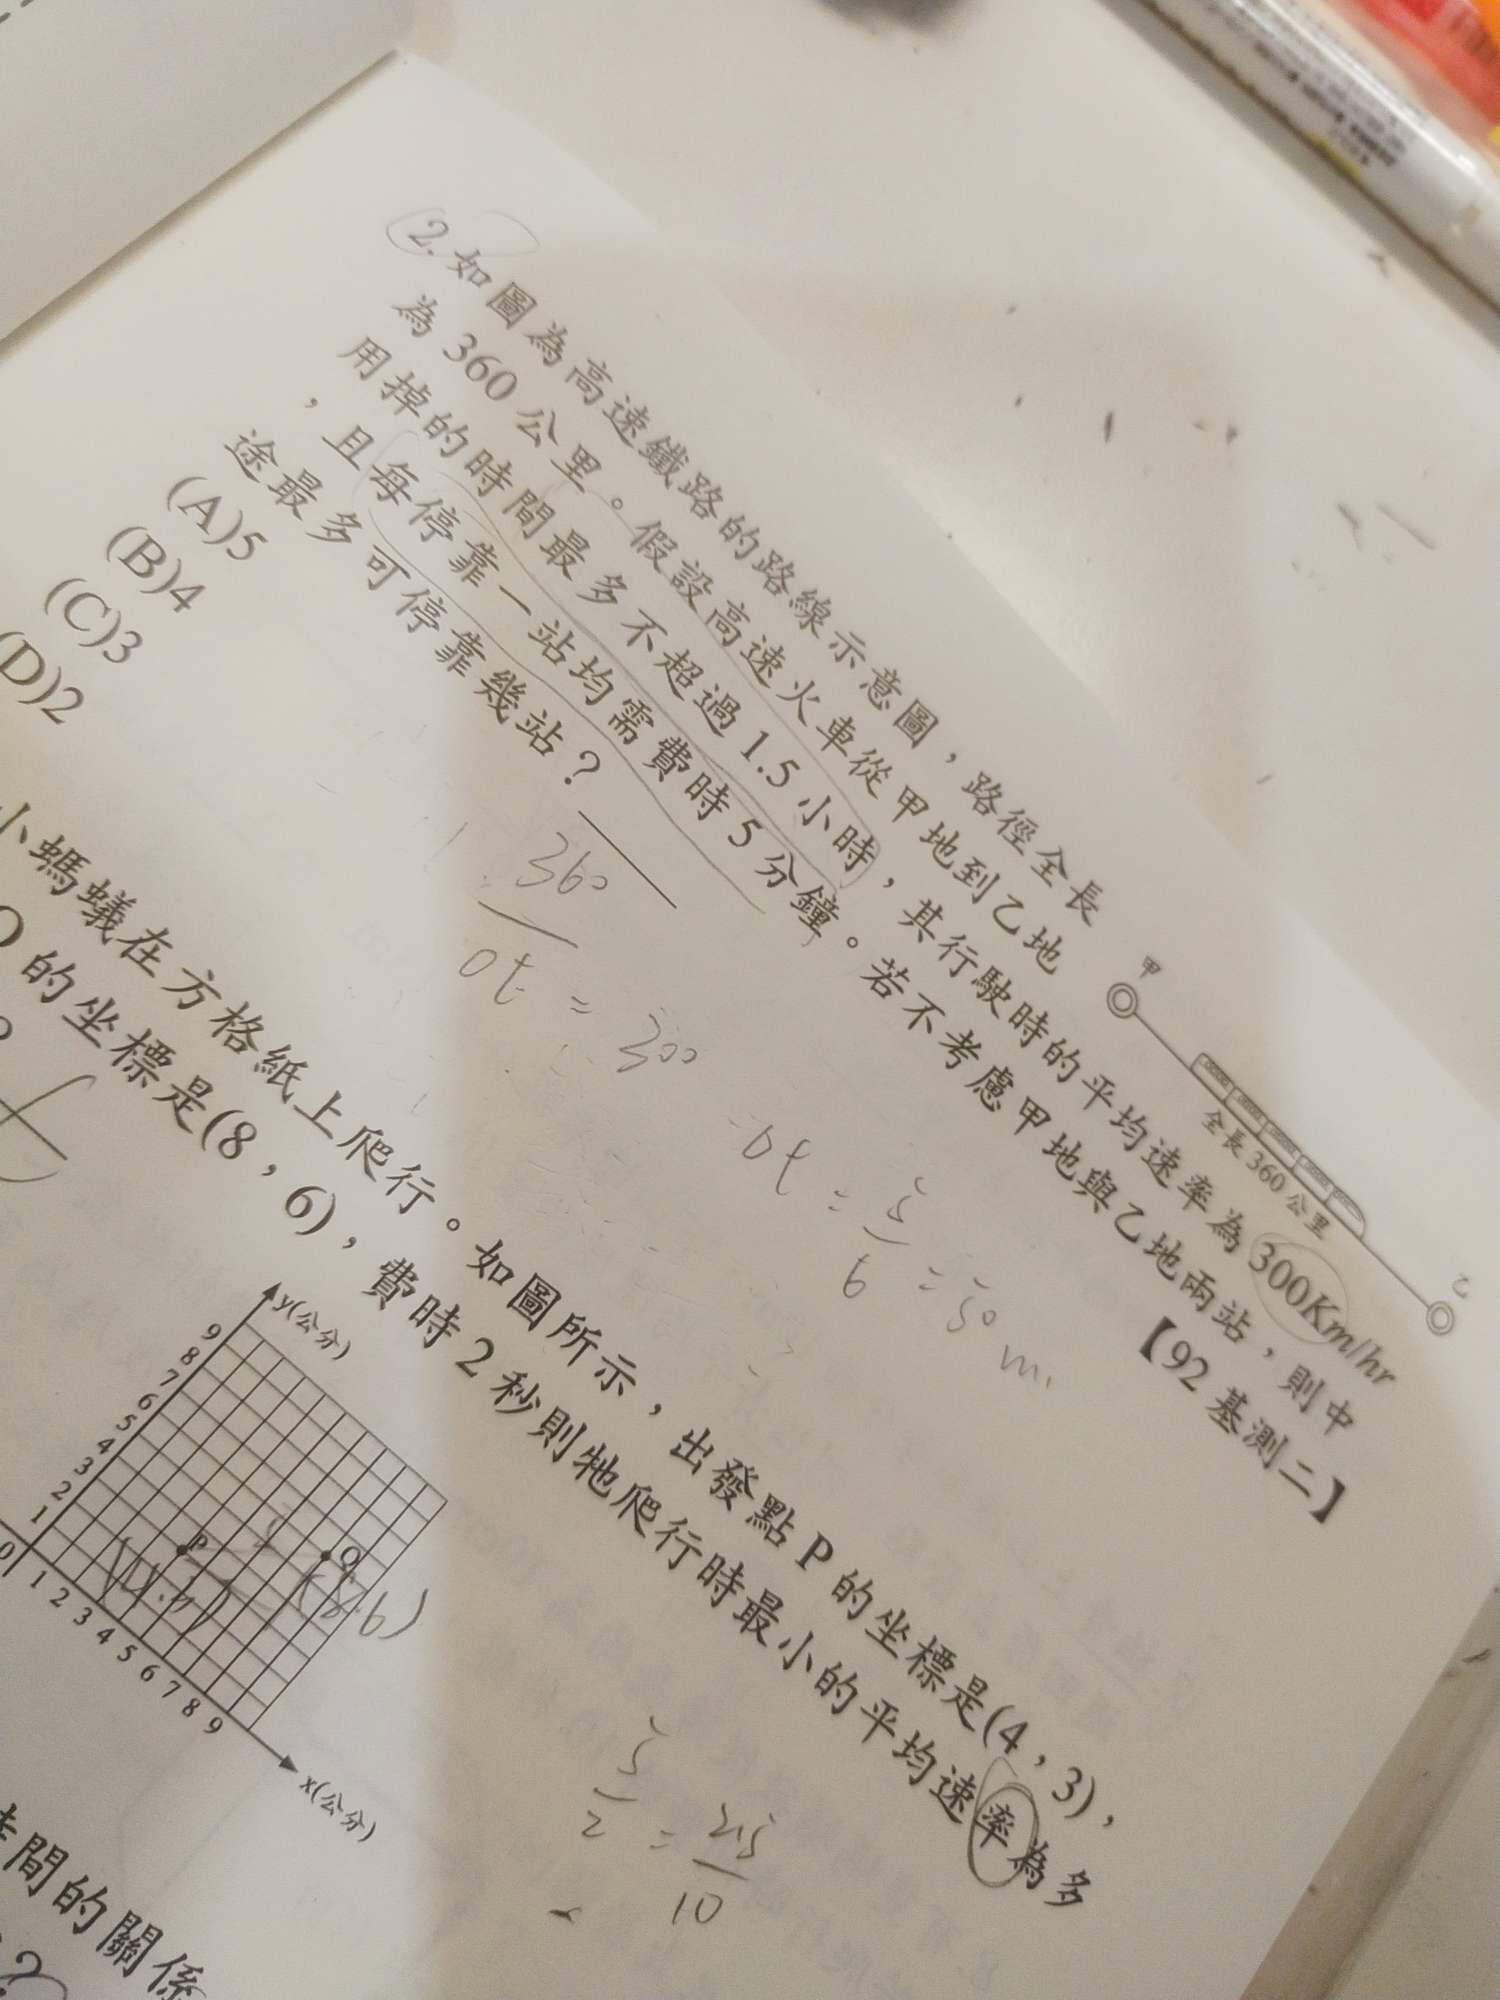 2.如圖為高速鐵路的路線示意圖，路徑全長
為 360 公里。假設高速火車從甲地到乙地
用掉的時間最多不超過 1.5 小時，其行駛時的平均速率為 300Km/hr
，且每停靠一站均需費時 5 分鐘。若不考慮甲地與乙地兩站，則中
途最多可停靠幾站？
【92 基測二】
(A)5
(B)4
(C)3
(D)2
甲
全長 360 公里
乙
360
= 300
小螞蟻在方格紙上爬行。如圖所示，出發點 P 的坐標是(4，3)，
Q 的坐標是(8，6)，費時 2 秒則牠爬行時最小的平均速率為多
y(公分)
9
8
7
6
5
4
3
2
1
0
1 2 3 4 5 6 7 8 9
x(公分)
P
Q
5
2
=
10
時間的關係
？